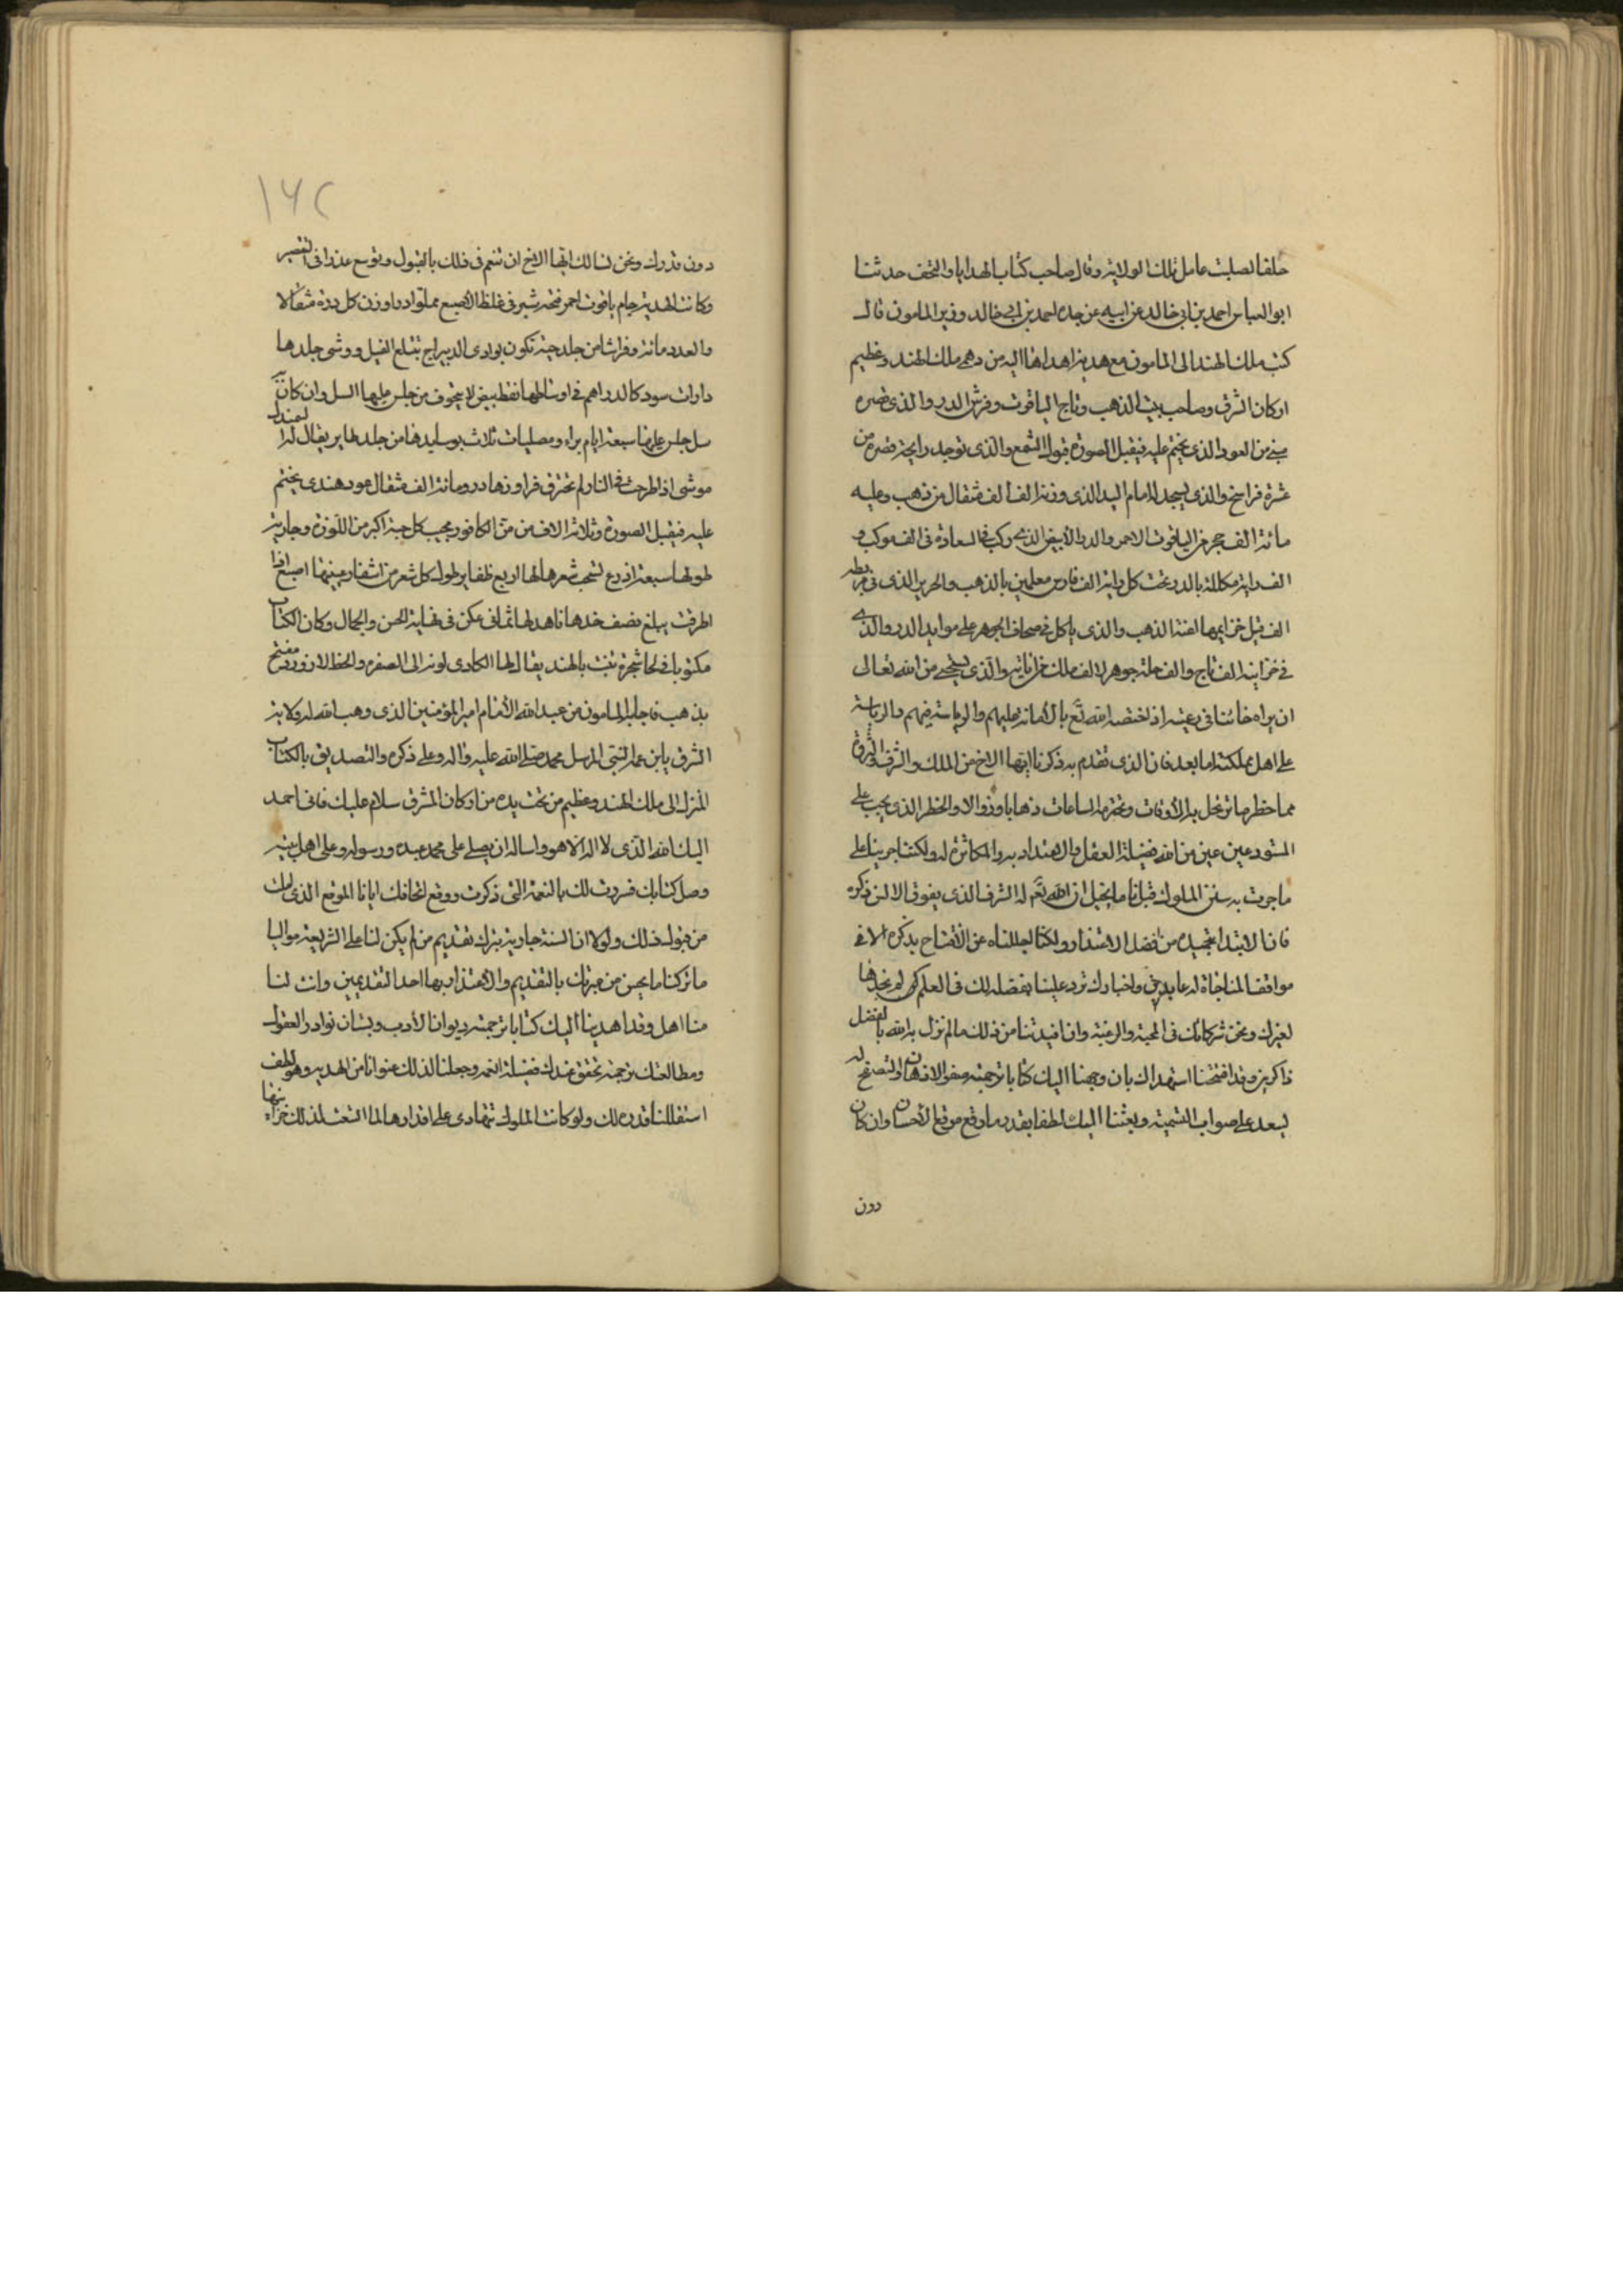 خلفا لصلبت عامل تلك الولاية وقال صاحب كتاب الهدايا والتحف حدثنا
ابو العباس احمد بن ابي خالد عن ابيه عن جده احمد بن ابي خالد وزير المامون قال
كتب ملك الهند الى المامون مع هدية اهداها اليه من دهمى ملك الهند وعظيم
اركان الشرق وصاحب بيت الذهب وتاج الياقوت وفرش الدر والذى قصره
مبنى من العود الذى يختم عليه فيقبل الصورة قبول الشمع والذى توجد رايحة قصره من
عشرة فراسخ والذى يسجد له امام البد الذى وزنه الف الف مثقال من ذهب وعليه
مائة الف حجر من الياقوت الاحمر والدر الابيض الذى ركب فى السعادة فى الف موكب و
الف راية مكللة بالدر تحت كل راية الف فارس معلمين بالذهب والحرير الذى فى مربطه
الف فيل خزايمها اعنة الذهب والذى ياكل فى صحاف الجوهر على موايد الدر والذى
فى خزاينه الف تاج والف حلة جوهر لالف ملك من ابائه والذى يستحى من الله تعالى
ان يراه خائنا فى رعيته اذ اختصه الله تع بالامانة عليهم والرياسة فيهم والرياسة
على اهل مملكته اما بعد فان الذى تقدم به ذكرنا ايها الاخ من الملك والشرف والثروة
مما خطر ما ترتحل به الاوقات وتخترمه الساعات ذهابا وزوالا والخطر الذى يجب على
المستودعين عين من الله فضيلة العقل والاعتداد به والمكاثرة له ولكننا جرينا على
ما جرت به سنن الملوك قبلنا ما يخيل ان الله تع له الشرف الذى يفوق الالسن ذكره
فان الابتدا بتمجيده من افضل الاعتذار ولكنا اجللناه عن الافتتاح بذكره الا فى
مواقف المناجاة له عابدين واخبارك ترد علينا بفضله لك فى العلم لم نجدها
لغيرك ونحن شركائك فى المحبة والرغبة وان افيدتنا من ذلك ما لم نزل به الله بالفضل
ذاكرين وقد افتتحنا استهداك بان وجهنا اليك كتابا ترجمته صفو الاذهان والتصفح له
يسعد على صواب التسمية وبعثنا اليك لطفا بقدر ما وقع موقع الاحسان وان كان
دون
١٦٢
دون قدرك ونحن نسالك ايها الاخ ان تنعم فى ذلك بالقبول وتوسع عذرا فى التقصير
وكانت الهدية جام ياقوت احمر فتحه شبر فى غلظ الاصبع مملوا درا وزن كل درة مثقالا
والعدد مائة وفراشا من جلد حية تكون بوادى الديبراج تبتلع الفيل ووشى جلدها
دارات سود كالدراهم فى اوساطها نقط بيض لا يتخوف من جلس عليها السل وان كان به
سل جلس عليها سبعة ايام براء ومصليات ثلاث بوسايدها من جلد طاير يقال له السمندل
موشى اذا طرحت فى النار لم تحترق فراوزها درر ومائة الف مثقال عود هندى يختم
عليه فيقبل الصورة وثلاثة الاف من من الكافور محبب كل حبة اكبر من اللوزة وجارية
طولها سبعة اذرع تسحب شعرها لها اربع ظفاير طول كل شعر من اشفار عينيها اصبع اذا
اطرقت يبلغ نصف خدها ناهد لها ثمانى عكن فى نهاية الحسن والجمال وكان الكتاب
مكتوبا فى لحا شجرة تنبت بالهند يقال لها الكادى لونه الى الصفره والخط لازورد مفتح
بذهب فاجابه المامون من عبد الله الامام امير المؤمنين الذى وهب الله له ولابائه
الشرف بابن عمه النبى المرسل محمد صلى الله عليه واله وعلى ذكره والتصديق بالكتاب
المنزل الى ملك الهند وعظيم من تحت يده من اركان المشرق سلام عليك فانى احمد
اليك الله الذى لا اله الا هو واساله ان يصلى على محمد عبده ورسوله وعلى اهل بيته
وصل كتابك فسررت لك بالنعمة التى ذكرت ووقع اتحافك ايانا الموقع الذى املت
من قبوله ذلك ولولا ان السنة جارية بترك تقديم من لم يكن لنا على الشريعة مواليا
ما تركنا ما يحسن من مبرتك بالتقديم والاعتذار بها احد التقديمين وانت لنا
منا اهل وقد اهدينا اليك كتابا ترجمته ديوان الادب وبستان نوادر العقول
ومطالعتك ترجمته تحقق عندك فضيلة النعمة وجعلنا لذلك عنوانا من الهدية وهو لطف
استقللنا قدره لك ولو كانت الملوك تتهادى على اقدارها لما اتسعت لذلك خزائنها